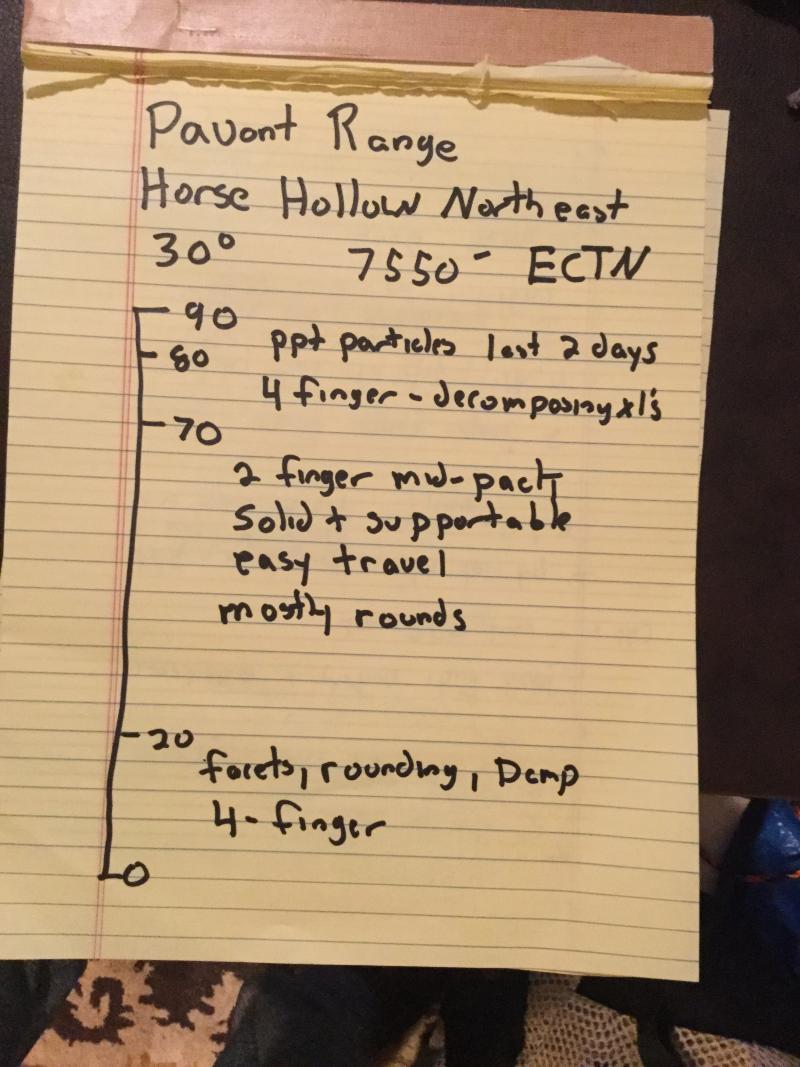 Pavant Range
Horse Hollow Northeast
30° 7550- ECTN
90
ppt particles last 2 days
80
4 finger - decomposing xl's
70
2 finger mid-pack
Solid + supportable
easy travel
mostly rounds
20
facets, rounding, Damp
4-finger
0